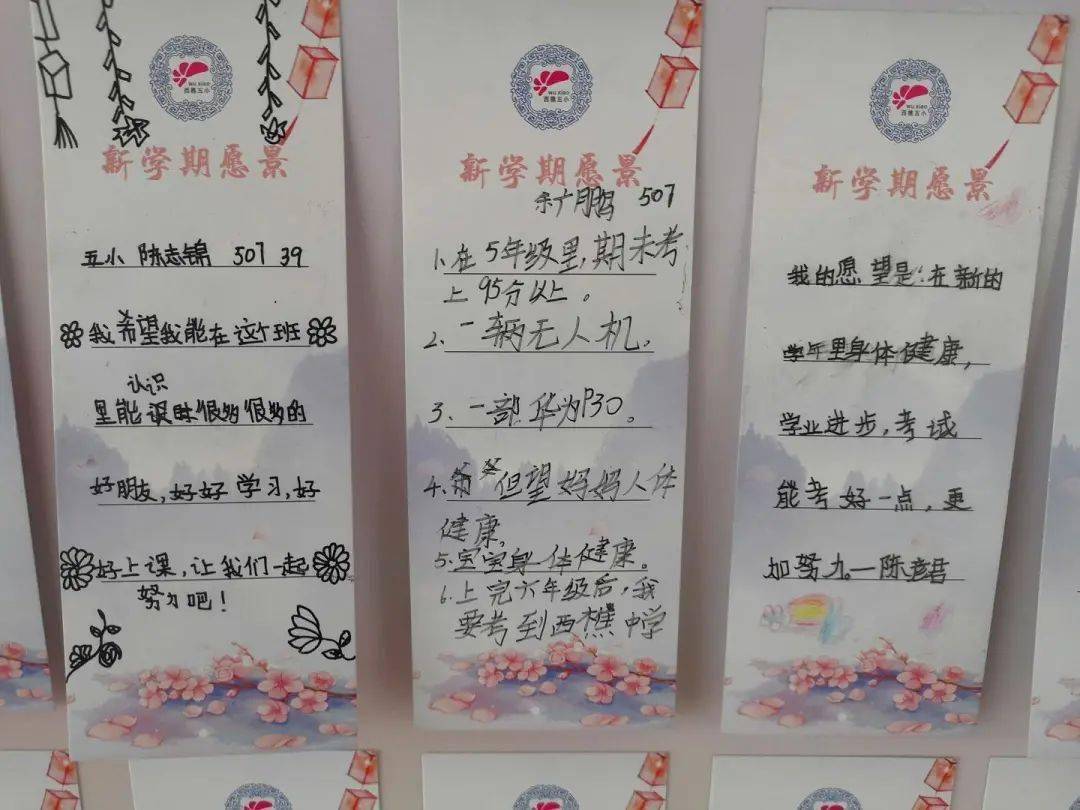 Wu Xiao
西樵五小
新学期愿景
五小 陈志锦 507 39
我希望我能在这个班
认识
里能 很多很多的
好朋友,好好学习,好
好上课,让我们一起
努力吧!
Wu Xiao
西樵五小
新学期愿景
广鹏 507
1.在5年级里,期未考
上95分以上。
2.一辆无人机,
3.一部华为P30。
4. 但望妈妈人体
健康,
5.宝宝身体健康。
6.上完六年级后,我
要考到西樵中学
Wu Xiao
西樵五小
新学期愿景
我的愿望是:在新的
学年里身体健康,
学业进步,考域
能考好一点,更
加努力。—陈彦君